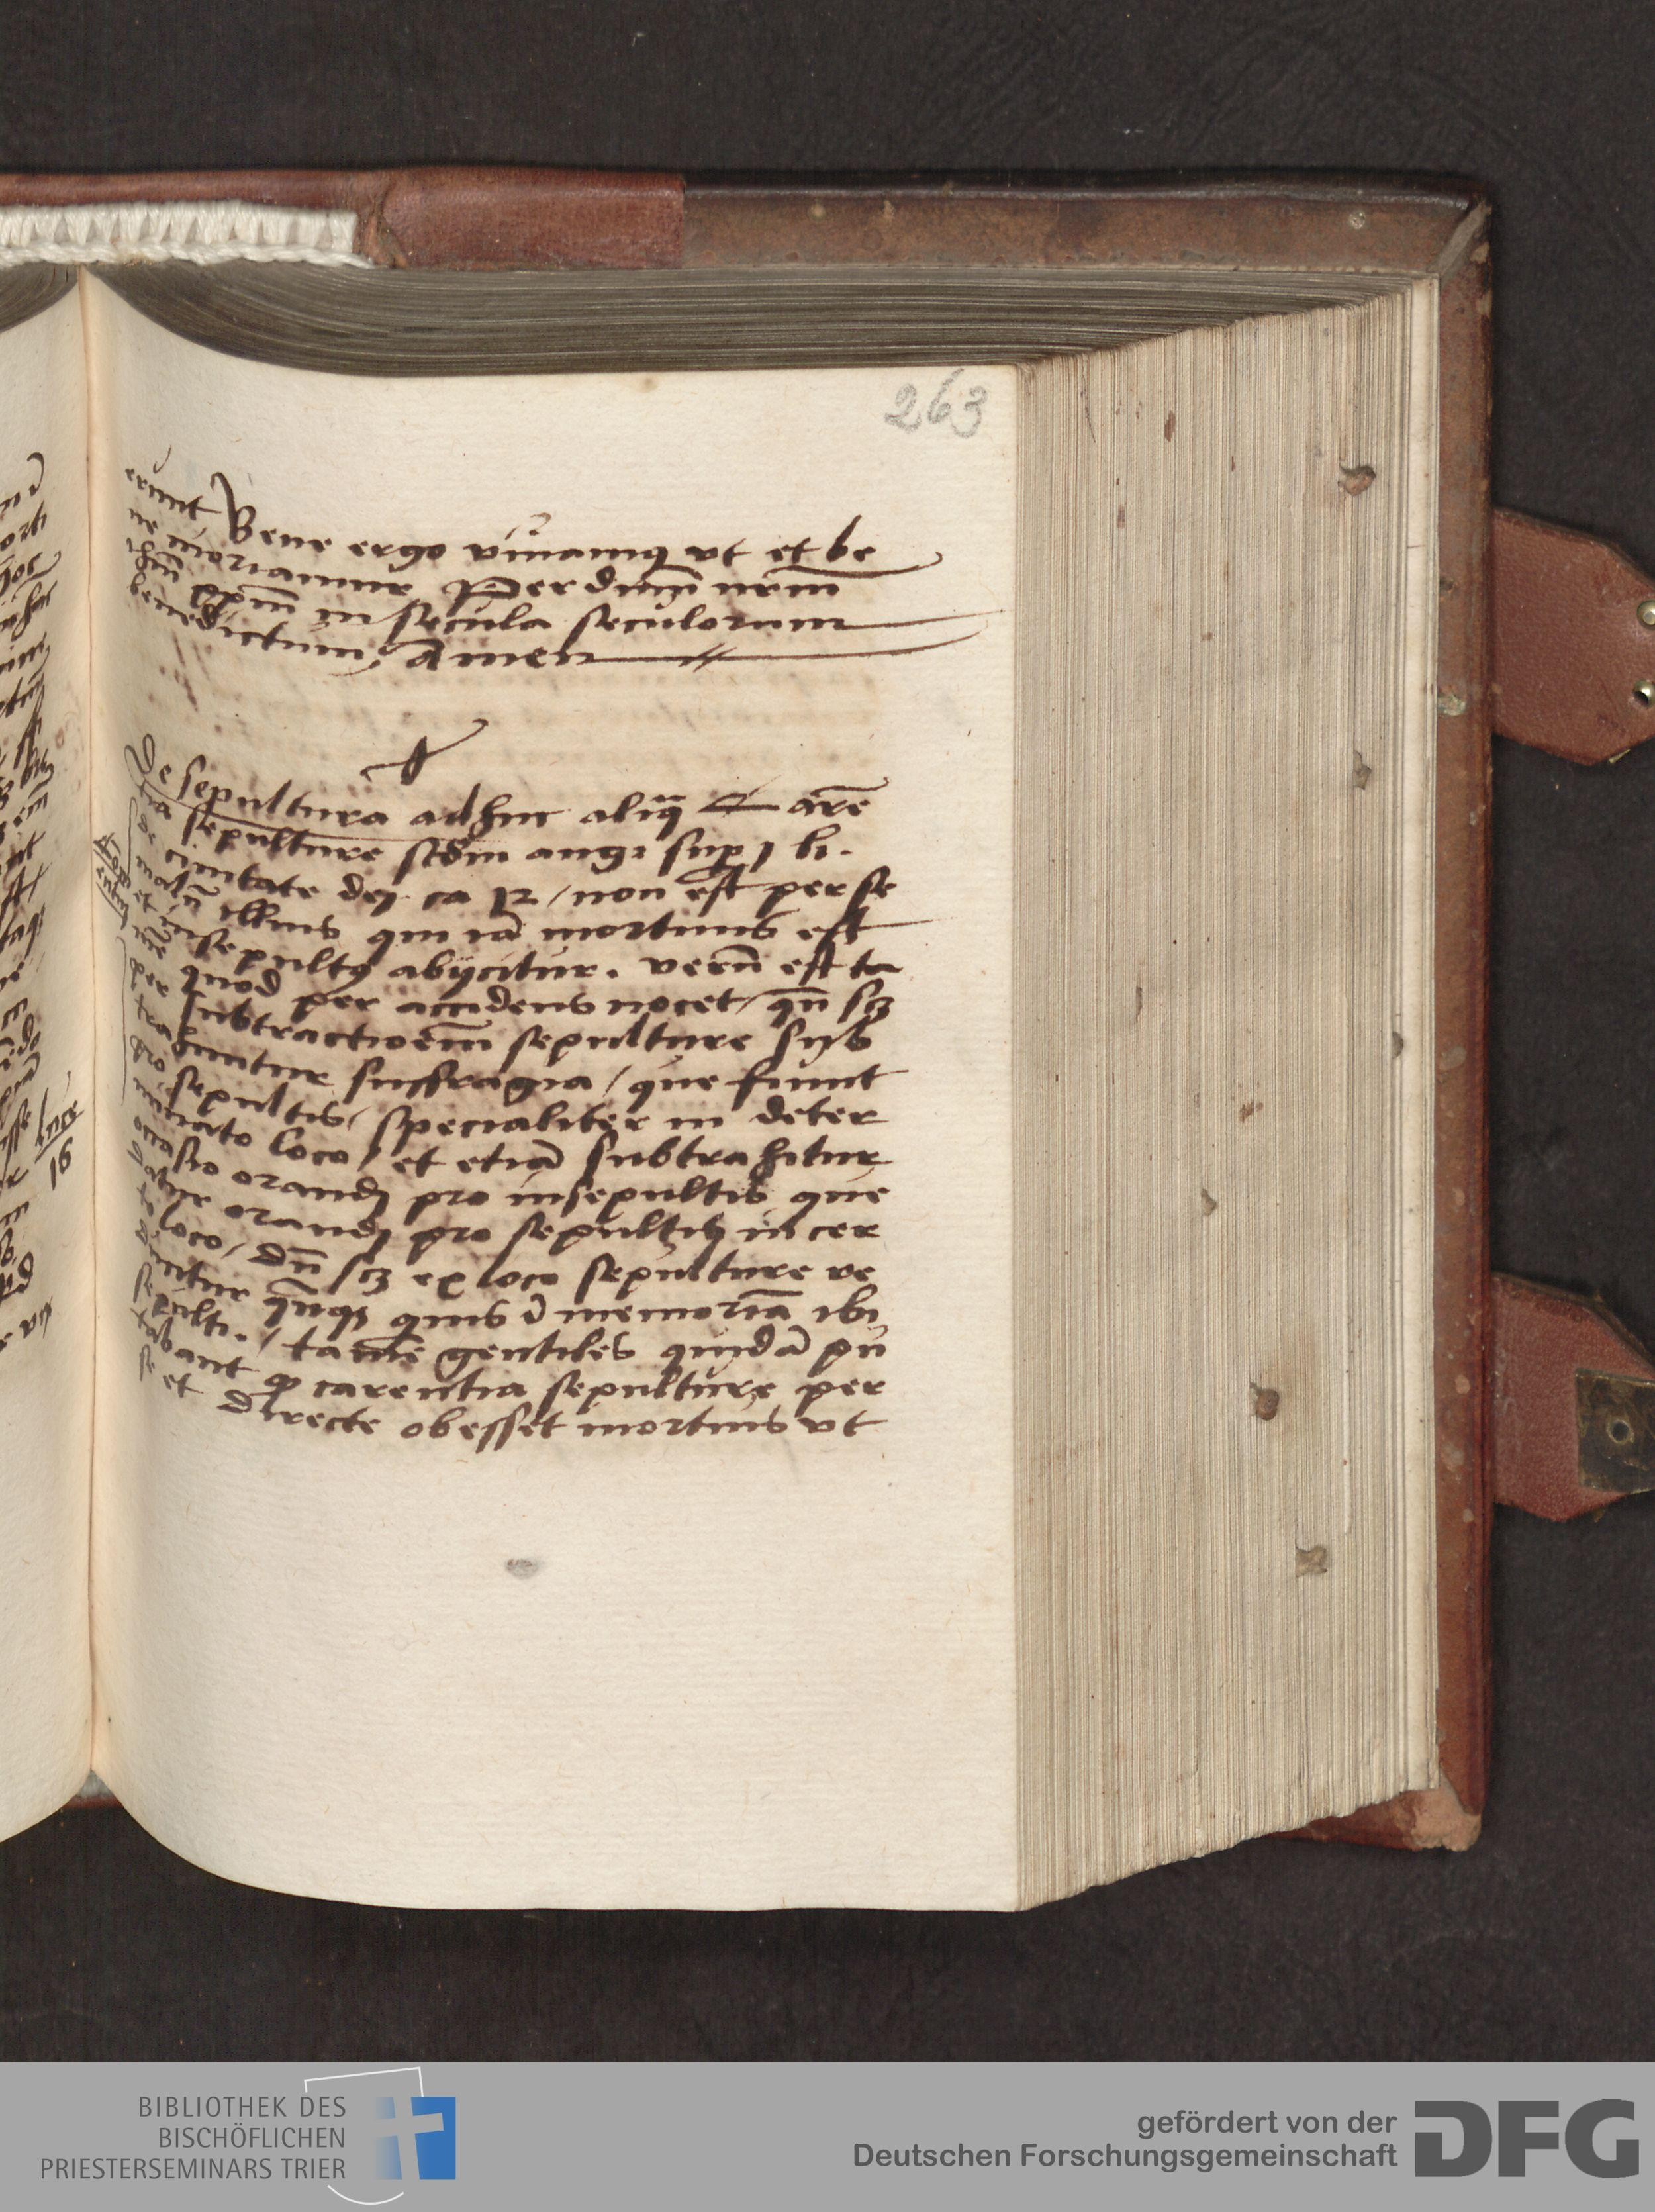 263
erunt Bene ergo viuamꝯ vt et be
ne moriamur Per dn̄m nr̄m
ihm̄ xpm̄ in secula seculorum
benedictum, Amen
De sepultura adhuc aliq̄ Care
tia sepulture scd̄m aug9 sup 1 li.
de ciuitate dej ca 12 / non est per se
illius qui iā mortuus est
et insepultꝯ abijcitur. verū est ta
mē quod per accidens nocet / qn̄ scꝫ
per subtractioēm sepulture sub
trahuntur suffragia / que fiunt
pro sepultis / specialiter in deter
minato loco / et etiā subtrahitur
occasio orandj pro insepultis que
datur orandj pro sepultis in cer
to loco / dū scꝫ ex loco sepulture re
ducitur quis ī memoriā ibj
sepulti. / tamē gentiles quidā pu
tabant ꝙ carentia sepulture per
se et directe obesset mortuis vt
luce
16
BIBLIOTHEK DES
BISCHÖFLICHEN
PRIESTERSEMINARS TRIER
gefördert von der
Deutschen Forschungsgemeinschaft
DFG